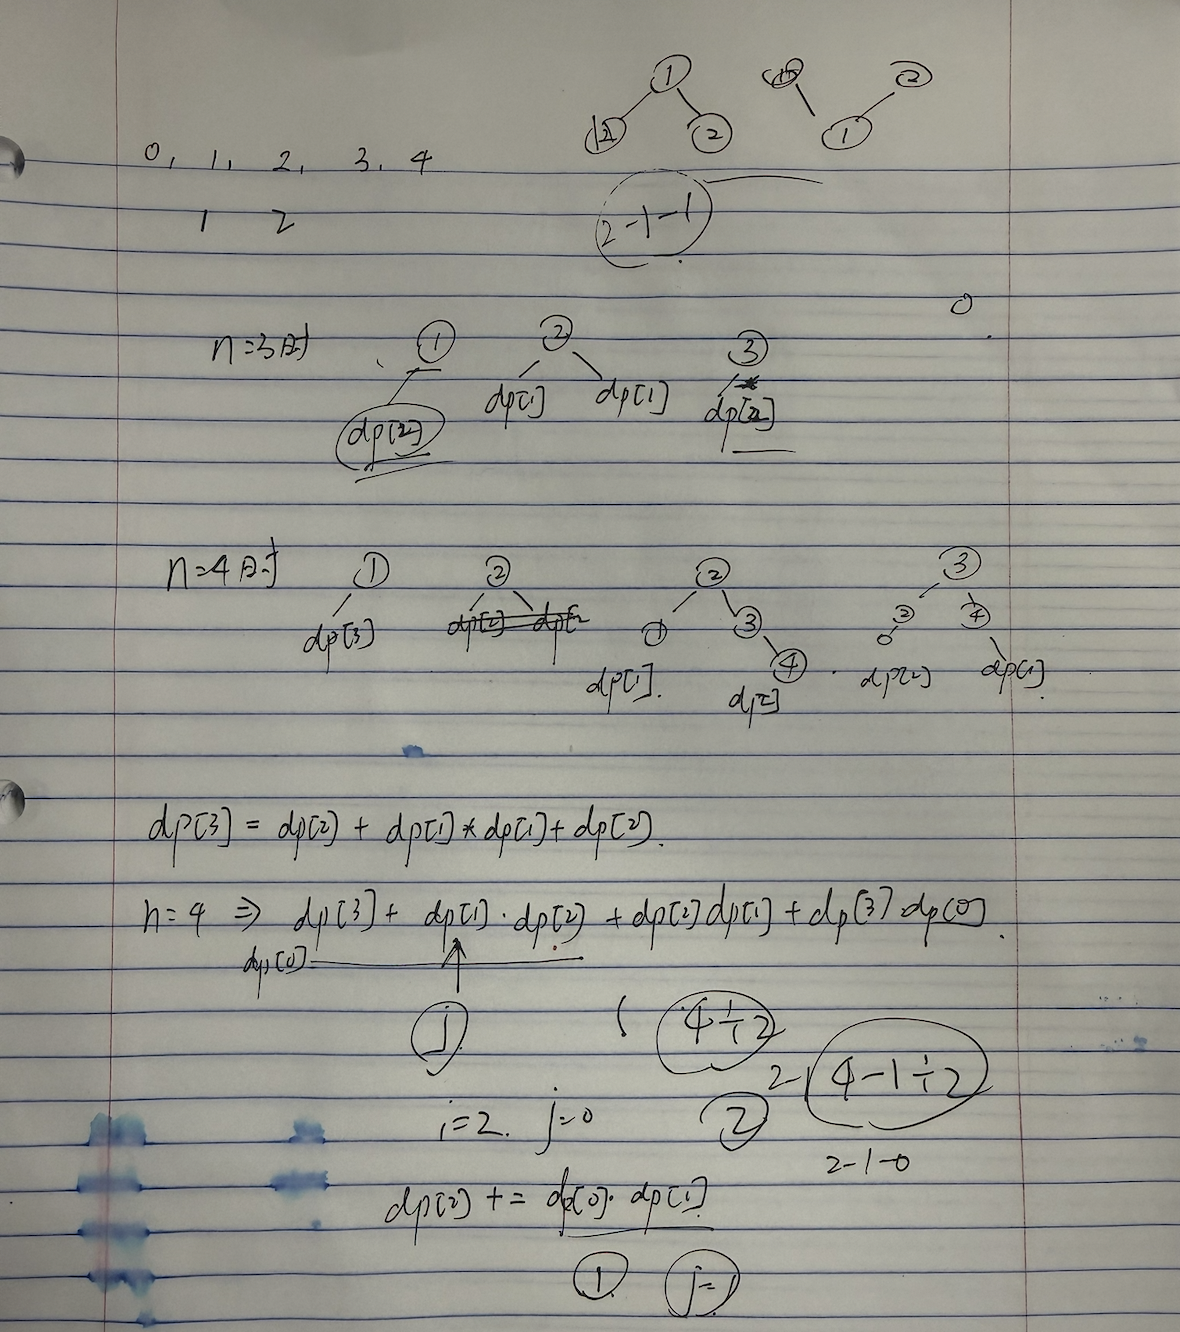 ① ②
② ①
0, 1, 2, 3, 4
1 2
2-1-1
0
n=3时 ① ② ③
dp[1] dp[1] dp[2]
dp[2]
n=4时 ① ② ② ③
dp[3] ① ③ ② ④
④
dp[1] dp[2] dp[1]
dp[3] = dp[2] + dp[1]*dp[1]+ dp[2].
n=4 ⇒ dp[3]+ dp[1]·dp[2] + dp[2]dp[1] + dp[3]·dp[0].
dp[0]
j 4÷2
2- 4-1÷2
i=2. j=0 ②
2-1-0
dp[2] += dp[0]· dp[1]
① j=1